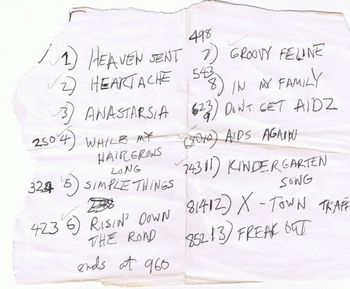 1) HEAVEN SENT
2) HEARTACHE
3) ANASTARSIA
250 4) WHILE MY
HAIR GROWS
LONG
324 5) SIMPLE THINGS
423 6) RISIN' DOWN
THE ROAD
ends at 960
498
7) GROOVY FELINE
543
8) IN MY FAMILY
623
9) DON'T GET AIDZ
10) AIDS AGAIN
743 11) KINDERGARTEN
SONG
814 12) X-TOWN TRAFF
852 13) FREAK OUT